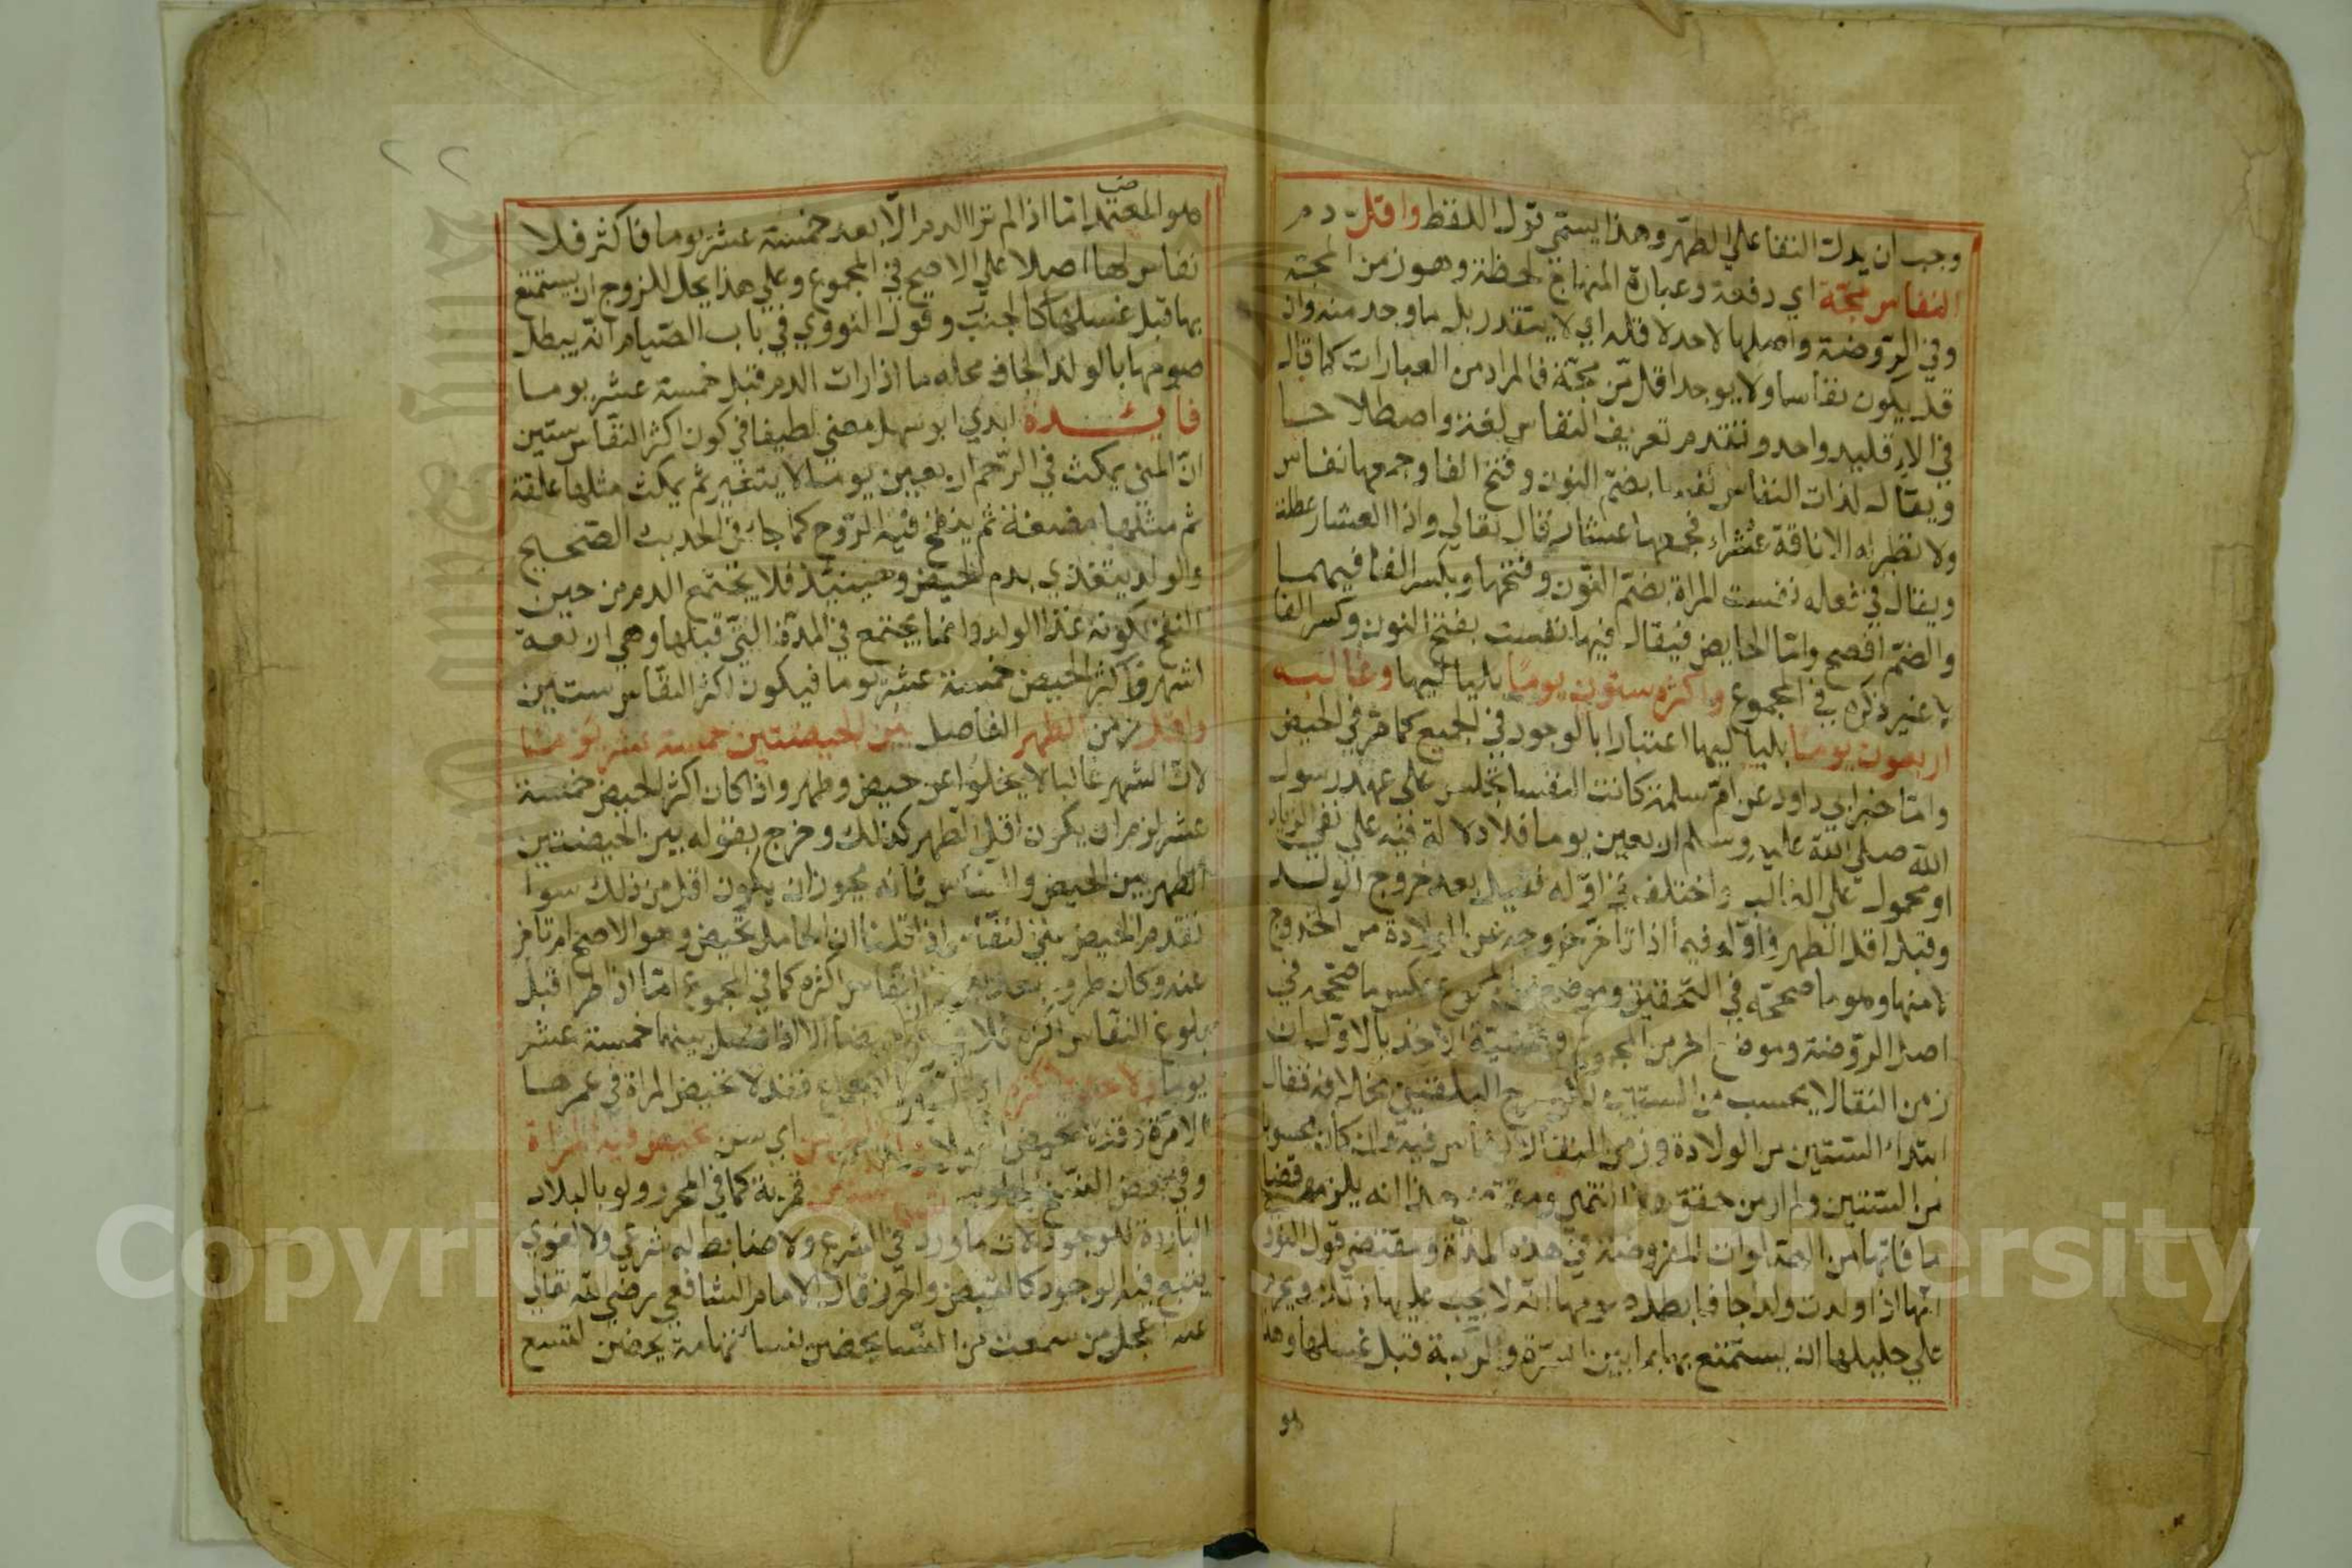 وجب ان يدل النفا علي الطهر وهذا يستمي قول اللفظ واقل دم
النفاس مجة اي دفعة وعبارة المنهاج لحظة وهو زمن المجة
وفي الروضة واصلها لاحد لا قله اي لا يتقدر بل ما وجد منه وان
قل يكون نفاسا ولا يوجد اقل من مجة فالمراد من العبارات كما قال
في الاقليد واحد وتقدم تعريف النفاس لغة واصطلاحا
ويقال لذات النفاس نفسا بضم النون وفتح الفا وجمعها نفاس
ولا نظير له الا ناقة عشراء فجمعها عشار قال تعالي واذا العشار عطلت
ويقال في فعله نفست المراة بضم النون وفتحها وبكسر الفا فيهما
والضم افصح واما الحايض فيقال فيها نفست بفتح النون وكسر الفا
لا غير ذكره في المجموع واكثره ستون يوما بلياليها وغالبه
اربعون يوما بلياليها اعتبارا بالوجود في الجميع كما مر في الحيض
واما خبر ابي داود عن ام سلمة كانت النفسا تجلس علي عهد رسول
الله صلي الله عليه وسلم اربعين يوما فلا دلالة فيه علي نفي الزياد
او محمول علي الغالب واختلف في اوله فقيل بعد خروج الولد
وقبل اقل الطهر فاوله فيما اذا تاخر خروجه عن الولادة من الخروج
لا منها وهو ما صححه في التحقيق وموضع من المجموع عكس ما صححه في
اصل الروضة وموضع اخر من المجموع وقضية الاخذ بالاول ان
زمن النقا لا يحسب من الستين لكن صرح البلقيني بخلافه فقال
ابتداء الستين من الولادة وزمن النقا لا نفاس فيه وان كان محسوبا
من الستين ولم ار من حقق هذا انتهي ومقتضي هذا انه يلزمها قضا
ما فاتها من الصلوات المفروضة في هذه المدة ومقتضي قول النوو
انها اذا ولدت ولدا جافا بطل صومها انه لا يجب عليها ذلك ويحرم
علي حليلها ان يستمتع بها بما بين السرة والركبة قبل غسلها وهذا
هو
٢٢
هو المعتمد اما اذا لم تر الدم الا بعد خمسة عشر يوما فاكثر فلا
نفاس لها اصلا علي الاصح في المجموع وعلي هذا يحل للزوج ان يستمتع
بها قبل غسلها كالجنب وقول النووي في باب الصيام انه يبطل
صومها بالولد الجاف محله ما اذا رات الدم قبل خمسة عشر يوما
فايدة ابدي ابو سهل معني لطيفا في كون اكثر النفاس ستين
ان المني يمكث في الرحم اربعين يوما لا يتغير ثم يمكث مثلها علقة
ثم مثلها مضغة ثم ينفخ فيه الروح كما جا في الحديث الصحيح
والولد يتغذي بدم الحيض وحينئذ فلا يجتمع الدم من حين
النفخ لكونه غذا الولد وانما يجتمع في المدة التي قبلها وهي اربعة
اشهر واكثر الحيض خمسة عشر يوما فيكون اكثر النفاس ستين
واقل زمن الطهر الفاصل بين الحيضتين خمسة عشر يوما
لان الشهر غالبا لا يخلوا عن حيض وطهر واذا كان اكثر الحيض خمسة
عشر لزم ان يكون اقل الطهر كذلك وخرج بقوله بين الحيضتين
الطهر بين الحيض والنفاس فانه يجوز ان يكون اقل من ذلك سوا
تقدم الحيض علي النفاس اذا قلنا ان الحامل تحيض وهو الاصح ام تاخر
عنه وكان طروه بعد بلوغ النفاس اكثره كما في المجموع اما اذا طرا قبل
بلوغ النفاس اكثره فلا يكون حيضا الا اذا فصل بينهما خمسة عشر
يوما ولا حد لاكثره اي الطهر بالاجماع فقد لا تحيض المراة في عمرها
الا مرة وقد لا تحيض اصلا واقل زمن اي سن تحيض فيه المراة
وفي بعض النسخ الجارية تسع سنين قمرية كما في المحرر ولو بالبلاد
الباردة للوجود لان ما ورد في الشرع ولا ضابط له شرعي ولا لغوي
يتبع فيه الوجود كالقبض والحرز قال الامام الشافعي رضي الله تعالي
عنه اعجل من سمعت من النسا يحضن نسا تهامة يحضن لتسع
Copyright © King Saud University